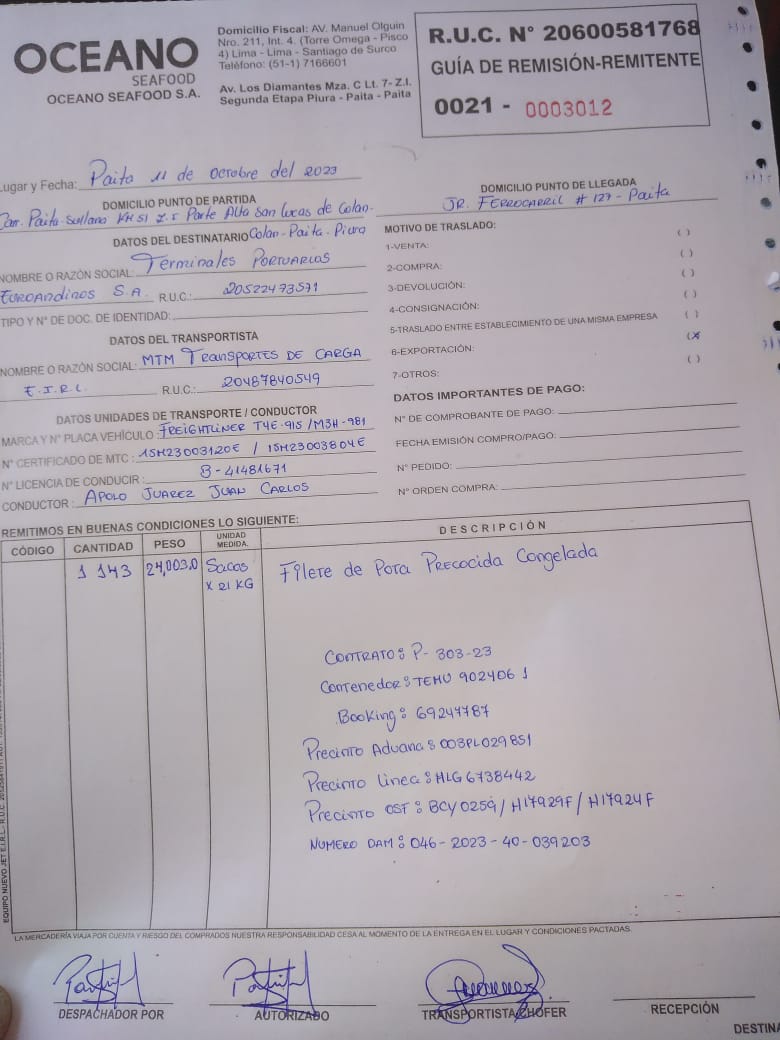 OCEANO
SEAFOOD
OCEANO SEAFOOD S.A.
Domicilio Fiscal: AV. Manuel Olguin
Nro. 211, Int. 4. (Torre Omega - Pisco
4) Lima - Lima - Santiago de Surco
Teléfono: (51-1) 7166601
Av. Los Diamantes Mza. C Lt. 7- Z.I.
Segunda Etapa Piura - Paita - Paita
R.U.C. N° 20600581768
GUÍA DE REMISIÓN-REMITENTE
0021 - 0003012
Lugar y Fecha: Paita 11 de Octubre del 2023
DOMICILIO PUNTO DE PARTIDA
Car. Paita Sullana KM 51 Z.I Parte Alta San Lucas de Colan-
Colan-Paita-Piura
DOMICILIO PUNTO DE LLEGADA
JR. FERROCARRIL # 127 - Paita
DATOS DEL DESTINATARIO
NOMBRE O RAZÓN SOCIAL: Terminales Portuarios
Euroandinos S.A. R.U.C.: 20522473571
TIPO Y N° DE DOC. DE IDENTIDAD:
DATOS DEL TRANSPORTISTA
NOMBRE O RAZÓN SOCIAL: MTM Transportes DE CARGA
E.I.R.L. R.U.C.: 20487840549
DATOS UNIDADES DE TRANSPORTE / CONDUCTOR
MARCA Y N° PLACA VEHÍCULO: FREIGHTLINER T4E-915 / M3H-981
N° CERTIFICADO DE MTC: 15M23003120E / 15M23003804E
N° LICENCIA DE CONDUCIR: B-41481671
CONDUCTOR: APOLO JUAREZ JUAN CARLOS
MOTIVO DE TRASLADO:
1-VENTA: ( )
2-COMPRA: ( )
3-DEVOLUCIÓN: ( )
4-CONSIGNACIÓN: ( )
5-TRASLADO ENTRE ESTABLECIMIENTO DE UNA MISMA EMPRESA ( )
6-EXPORTACIÓN: (X
7-OTROS: ( )
DATOS IMPORTANTES DE PAGO:
N° DE COMPROBANTE DE PAGO:
FECHA EMISIÓN COMPRO/PAGO:
N° PEDIDO:
N° ORDEN COMPRA:
REMITIMOS EN BUENAS CONDICIONES LO SIGUIENTE:
CÓDIGO CANTIDAD PESO UNIDAD MEDIDA. DESCRIPCIÓN
1 143 24,003.0 Sacos x 21 KG Filete de Pota Precocida Congelada
CONTRATO: P- 303-23
Contenedor: TEMU 902406 1
Booking: 69247787
Precinto Aduana: 003PL029851
Precinto Linea: HLG6738442
Precinto OSF: BCY0259 / H17929F / H17924F
NUMERO DAM: 046-2023-40-039203
LA MERCADERÍA VIAJA POR CUENTA Y RIESGO DEL COMPRADOS NUESTRA RESPONSABILIDAD CESA AL MOMENTO DE LA ENTREGA EN EL LUGAR Y CONDICIONES PACTADAS.
DESPACHADOR POR
AUTORIZADO
TRANSPORTISTA CHOFER
RECEPCIÓN
DESTINA